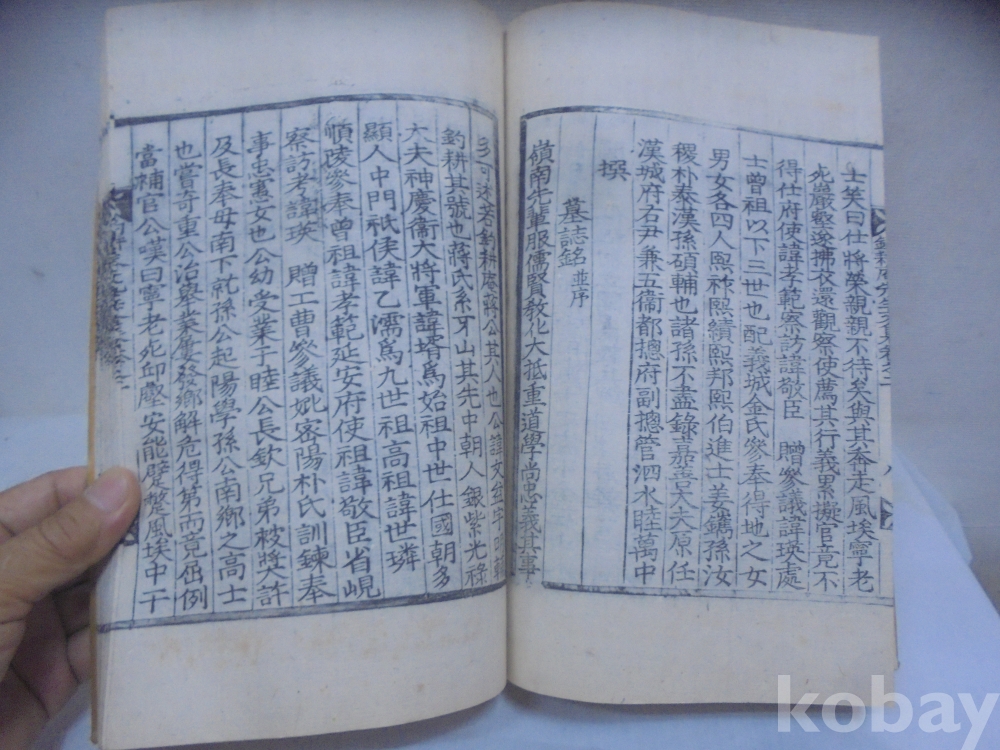 士笑曰仕將榮親親不得矣與其奔走風埃寧老
死巖壑遂拂衣還觀察使薦其行義累擬官竟不
得仕府使諱孝範察訪諱敬臣 贈參議諱瑛處
士曾祖以下三世也配義城金氏參奉得地之女
男女各四人熙祚熙績熙邦熙伯進士姜鐫孫汝
稷朴泰漢孫碩輔也諸孫不盡錄嘉善大夫原任
漢城府右尹兼五衛都摠府副摠管泗水睦萬中
撰
墓誌銘 並序
嶺南先輩服儒賢敎化大抵重道學尚忠義其事
多可述若釣耕庵蔣公其人也公諱文
釣耕其號也蔣氏系牙山其先中朝人銀紫光祿
大夫神慶衛大將軍諱壻爲始祖中世仕國朝多
顯人中門祗侯諱乙濡爲九世祖高祖諱世璘
順陵參奉曾祖諱孝範延安府使祖諱敬臣省峴
察訪考諱瑛 贈工曹參議妣密陽朴氏訓鍊奉
事忠憲女也公幼受業于睦公長欽兄弟棱將大許
及長奉母南下就孫公起陽學孫公南鄉之高士
也嘗奇重公治擧業屢發鄉解危得第而竟屈例
當補官公嘆曰寧老死邱壑安能躄躠風埃中干
kobay